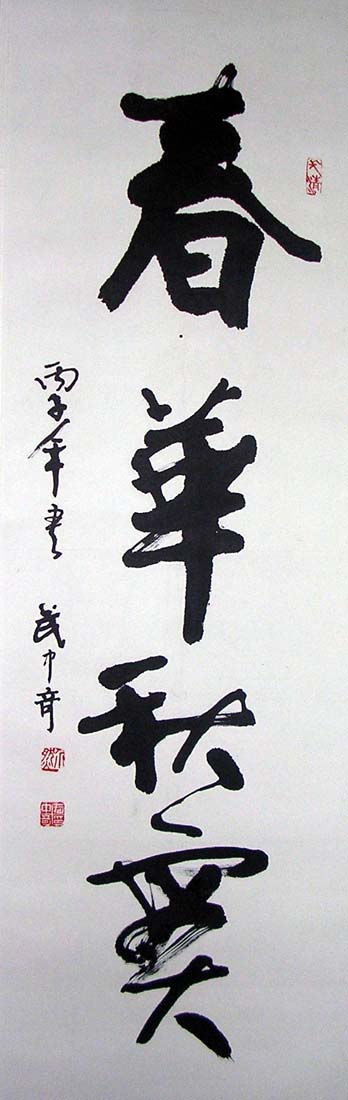 春華秋實
丙子年书 武中奇